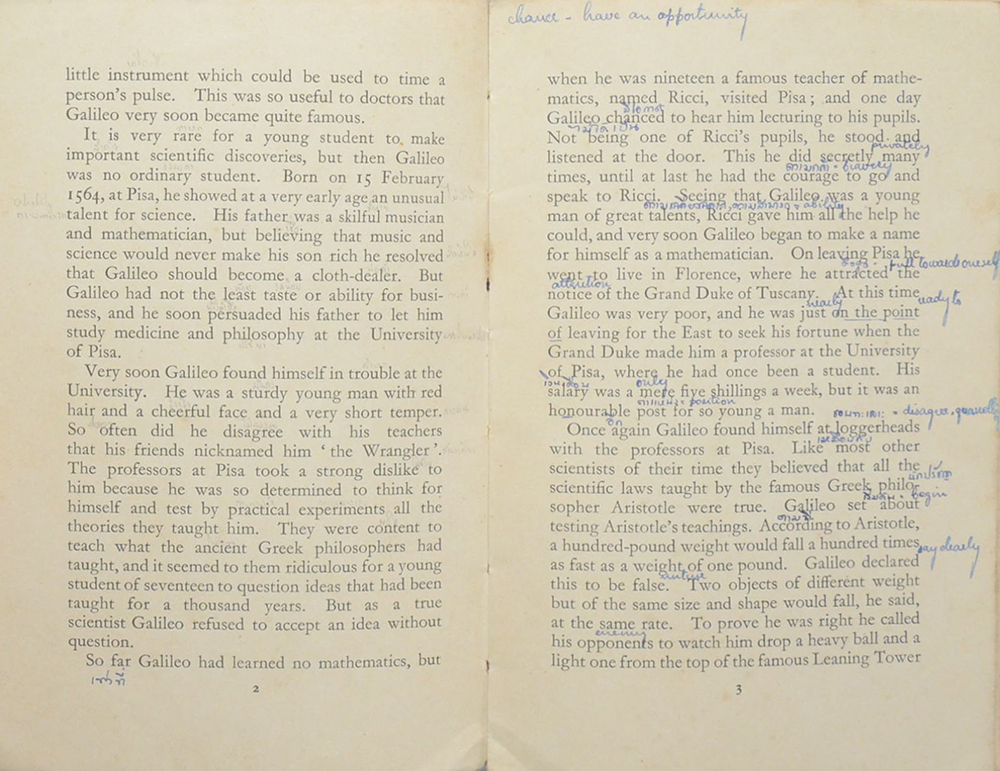 little instrument which could be used to time a
person's pulse. This was so useful to doctors that
Galileo very soon became quite famous.
It is very rare for a young student to make
important scientific discoveries, but then Galileo
was no ordinary student. Born on 15 February
1564, at Pisa, he showed at a very early age an unusual
talent for science. His father was a skilful musician
and mathematician, but believing that music and
science would never make his son rich he resolved
that Galileo should become a cloth-dealer. But
Galileo had not the least taste or ability for busi-
ness, and he soon persuaded his father to let him
study medicine and philosophy at the University
of Pisa.
Very soon Galileo found himself in trouble at the
University. He was a sturdy young man with red
hair and a cheerful face and a very short temper.
So often did he disagree with his teachers
that his friends nicknamed him ' the Wrangler '.
The professors at Pisa took a strong dislike to
him because he was so determined to think for
himself and test by practical experiments all the
theories they taught him. They were content to
teach what the ancient Greek philosophers had
taught, and it seemed to them ridiculous for a young
student of seventeen to question ideas that had been
taught for a thousand years. But as a true
scientist Galileo refused to accept an idea without
question.
So far Galileo had learned no mathematics, but
2
chance - have an opportunity
when he was nineteen a famous teacher of mathe-
matics, named Ricci, visited Pisa ; and one day
Galileo chanced to hear him lecturing to his pupils.
Not being one of Ricci's pupils, he stood and
privately
listened at the door. This he did secretly many
bravely
times, until at last he had the courage to go and
speak to Ricci. Seeing that Galileo was a young
= ability
man of great talents, Ricci gave him all the help he
could, and very soon Galileo began to make a name
for himself as a mathematician. On leaving Pisa he
pull towards oneself
went to live in Florence, where he attracted the
attention
notice of the Grand Duke of Tuscany. At this time
nearly ready to
Galileo was very poor, and he was just on the point
of leaving for the East to seek his fortune when the
Grand Duke made him a professor at the University
of Pisa, where he had once been a student. His
only
salary was a mere five shillings a week, but it was an
= position
honourable post for so young a man.
= disagree, quarrelly
Once again Galileo found himself at loggerheads
with the professors at Pisa. Like most other
scientists of their time they believed that all the
scientific laws taught by the famous Greek philo-
begin
sopher Aristotle were true. Galileo set about
testing Aristotle's teachings. According to Aristotle,
a hundred-pound weight would fall a hundred times
say clearly
as fast as a weight of one pound. Galileo declared
this to be false. Two objects of different weight
but of the same size and shape would fall, he said,
at the same rate. To prove he was right he called
enemy
his opponents to watch him drop a heavy ball and a
light one from the top of the famous Leaning Tower
3